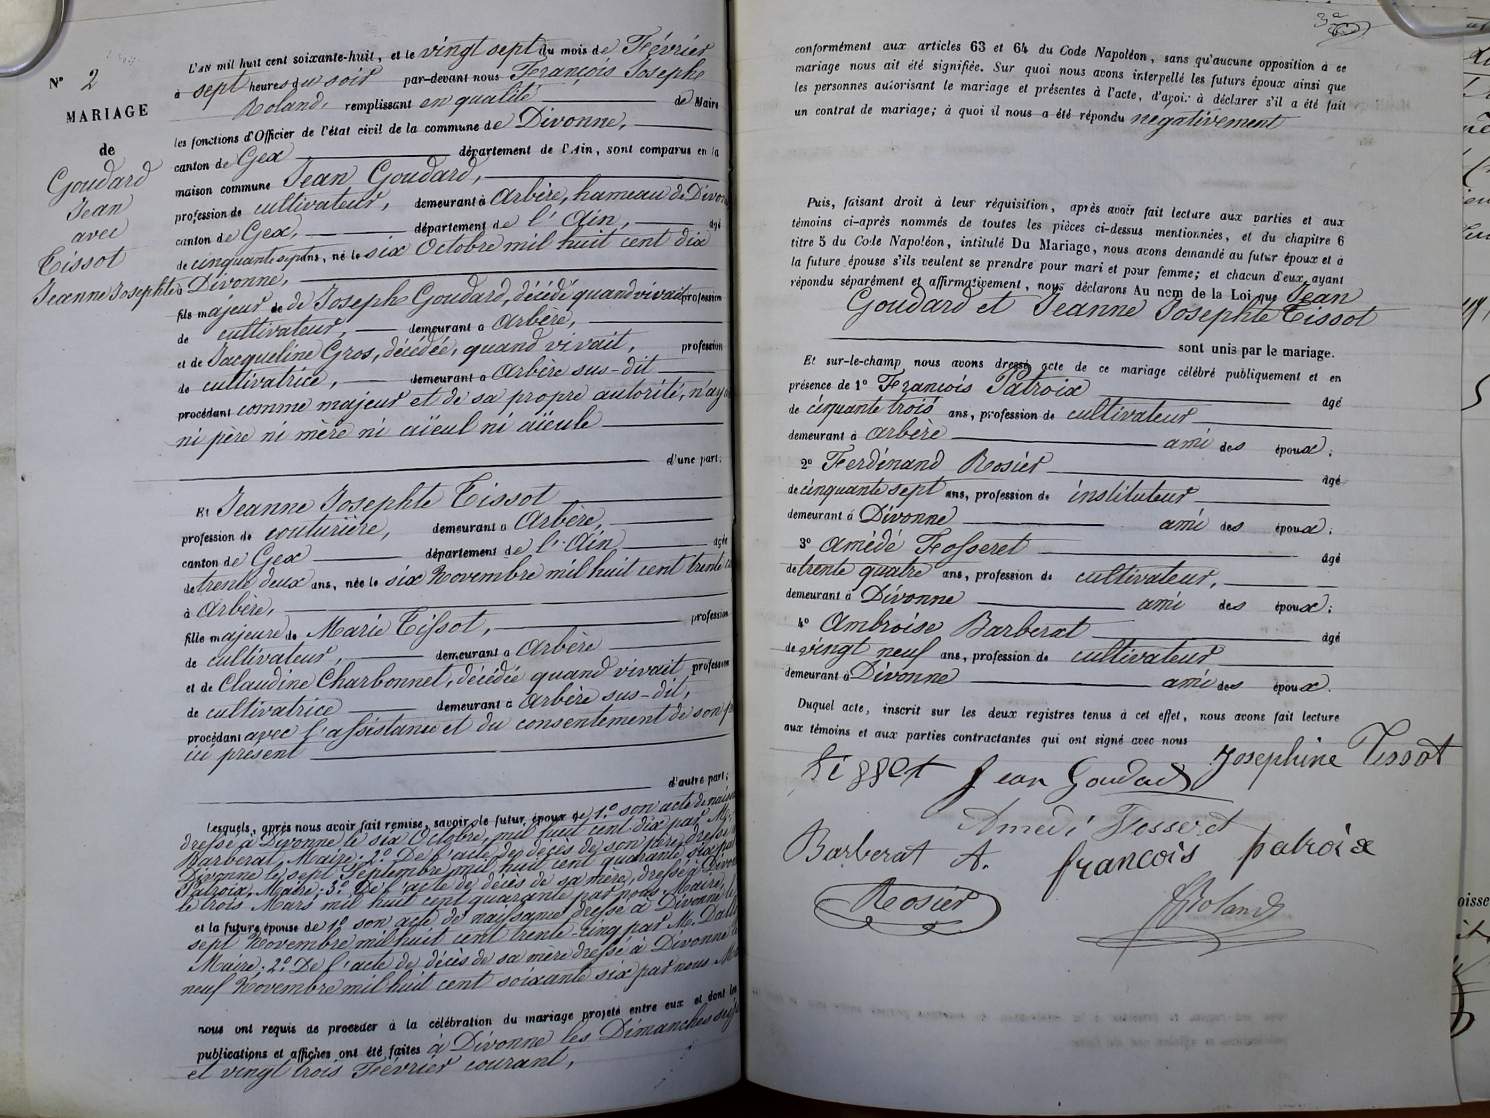 N° 2
MARIAGE
de
Goudard
Jean
avec
Tissot
Jeanne Josephte
L'AN mil huit cent soixante-huit, et le vingt sept du mois de Février
à sept heures du soir par-devant nous François Josephe
Roland, remplissant en qualité de Maire
les fonctions d'Officier de l'état civil de la commune de Divonne,
canton de Gex département de l'Ain, sont comparus en la
maison commune Jean Goudard,
profession de cultivateur, demeurant à Arbère, hameau de Divon
canton de Gex, département de l'Ain, âgé
de cinquante sept ans, né le six Octobre mil huit cent dix
à Divonne,
fils majeur de Josephe Goudard, décédé quand vivait profession
de cultivateur, demeurant à Arbère,
et de Jacqueline Gros, décédée, quand vivait, profession
de cultivatrice, demeurant à Arbère sus-dit
procédant comme majeur et de sa propre autorité, n'ay
ni père ni mère ni aïeul ni aïeule
d'une part;
Et Jeanne Josephte Tissot
profession de couturière, demeurant à Arbère,
canton de Gex département de l'Ain âgée
de trente deux ans, née le six Novembre mil huit cent trente c
à Arbère,
fille majeure de Marie Tissot, profession
de cultivateur demeurant à Arbère
et de Claudine Charbonnet, décédée quand vivait profession
de cultivatrice demeurant à Arbère sus-dit,
procédant avec l'assistance et du consentement de son p
ici présent
d'autre part;
Lesquels, après nous avoir fait remise, savoir, le futur époux de 1° son acte de naiss
dressé à Divonne le six Octobre, mil huit cent dix par Mr
Barberat, Maire; 2° De l'acte de décès de son père, dressé
Divonne le sept Septembre mil huit cent quarante six par
Patroix, Maire; 3° De l'acte de décès de sa mère, dressé à Divon
le trois Mars mil huit cent quarante par nous Maire,
et la future épouse de 1° son acte de naissance dressé à Divonne le
sept Novembre mil huit cent trente-cinq par M.
Maire; 2° De l'acte de décès de sa mère dressé à Divonne le
neuf Novembre mil huit cent soixante six par nous M
nous ont requis de procéder à la célébration du mariage projeté entre eux et dont les
publications et affiches ont été faites à Divonne les Dimanches sei
et vingt trois Février courant,
conformément aux articles 63 et 64 du Code Napoléon, sans qu'aucune opposition à ce
mariage nous ait été signifiée. Sur quoi nous avons interpellé les futurs époux ainsi que
les personnes autorisant le mariage et présentes à l'acte, d'avoir à déclarer s'il a été fait
un contrat de mariage; à quoi il nous a été répondu négativement
Puis, faisant droit à leur réquisition, après avoir fait lecture aux parties et aux
témoins ci-après nommés de toutes les pièces ci-dessus mentionnées, et du chapitre 6
titre 5 du Code Napoléon, intitulé Du Mariage, nous avons demandé au futur époux et à
la future épouse s'ils veulent se prendre pour mari et pour femme; et chacun d'eux, ayant
répondu séparément et affirmativement, nous déclarons Au nom de la Loi que Jean
Goudard et Jeanne Josephte Tissot
sont unis par le mariage.
Et sur-le-champ nous avons dressé acte de ce mariage célébré publiquement et en
présence de 1° François Patroix âgé
de cinquante trois ans, profession de cultivateur
demeurant à Arbère ami des époux;
2° Ferdinand Rosier âgé
de cinquante sept ans, profession de instituteur
demeurant à Divonne ami des époux;
3° Amédé Fosseret âgé
de trente quatre ans, profession de cultivateur,
demeurant à Divonne ami des époux;
4° Ambroise Barberat âgé
de vingt neuf ans, profession de cultivateur
demeurant à Divonne ami des époux.
Duquel acte, inscrit sur les deux registres tenus à cet effet, nous avons fait lecture
aux témoins et aux parties contractantes qui ont signé avec nous
Jean Goudard Josephine Tissot
Amedé Fosseret
Barberat A. françois patroix
Rosier
Roland